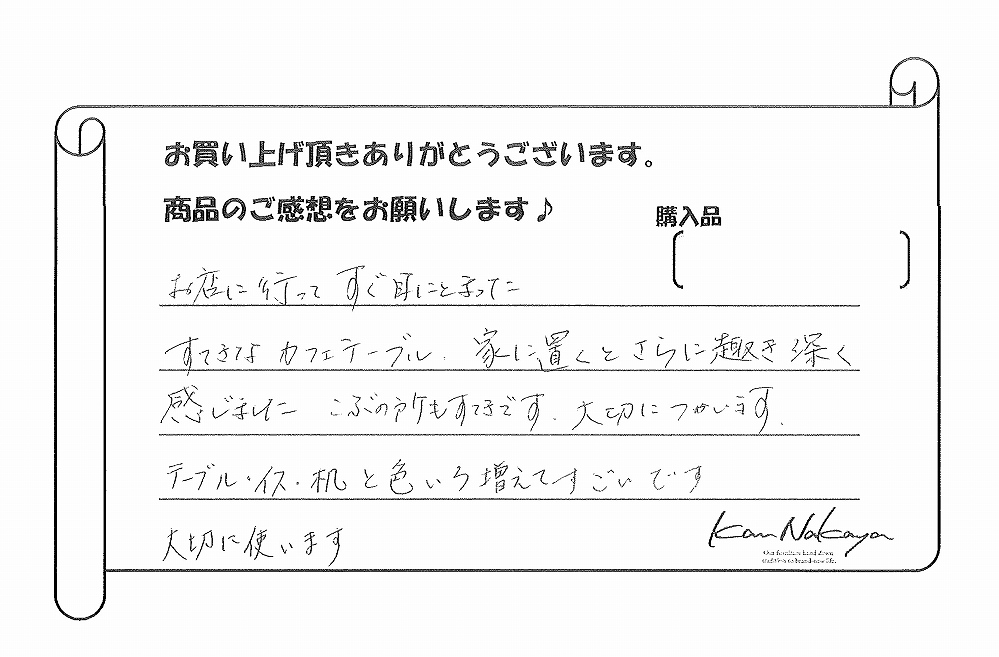 お買い上げ頂きありがとうございます。
商品のご感想をお願いします♪
購入品
お店に行って すぐ目にとまった
すてきな カフェテーブル. 家に置くとさらに趣き深く
感じました こぶの所もすてきです. 大切につかいます.
テーブル・イス・机と色いろ増えてすごいです
大切に使います
Kan Nakaya
Our furniture bind down
tradition to brand-new life.